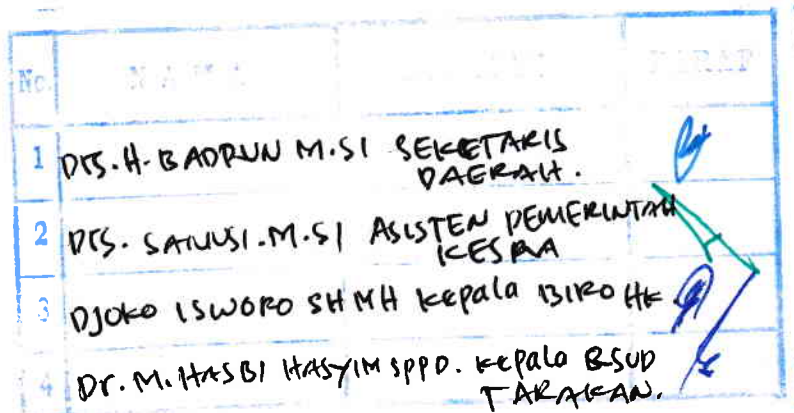 No. NAMA PARAF
1 DRS. H. BADRUN M.SI SEKRETARIS
DAERAH.
2 DRS. SANUSI. M.SI ASISTEN PEMERINTAH
KESRA
3 DJOKO ISWORO SH MH Kepala BIRO HK
4 Dr. M. HASBI HASYIM SPPD. Kepala RSUD
TARAKAN.